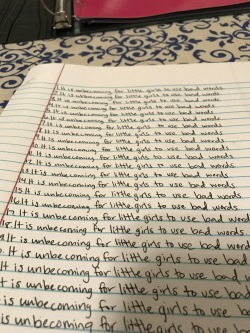 1. It is unbecoming for little girls to use bad words
2. It is unbecoming for little girls to use bad words
3. It is unbecoming for little girls to use bad words
4. It is unbecoming for little girls to use bad words
5. It is unbecoming for little girls to use bad words
6. It is unbecoming for little girls to use bad words
7. It is unbecoming for little girls to use bad words
8. It is unbecoming for little girls to use bad words
9. It is unbecoming for little girls to use bad words
10. It is unbecoming for little girls to use bad words
11. It is unbecoming for little girls to use bad words
12. It is unbecoming for little girls to use bad words
13. It is unbecoming for little girls to use bad words
14. It is unbecoming for little girls to use bad words
15. It is unbecoming for little girls to use bad words
16. It is unbecoming for little girls to use bad words
17. It is unbecoming for little girls to use bad words
18. It is unbecoming for little girls to use bad word
It is unbecoming for little girls to use bad word
It is unbecoming for little girls to use bad
It is unbecoming for little girls to use bad
It is unbecoming for little girls to use bad
is unbecoming for little girls to use bad
is unbecoming for little girls to use